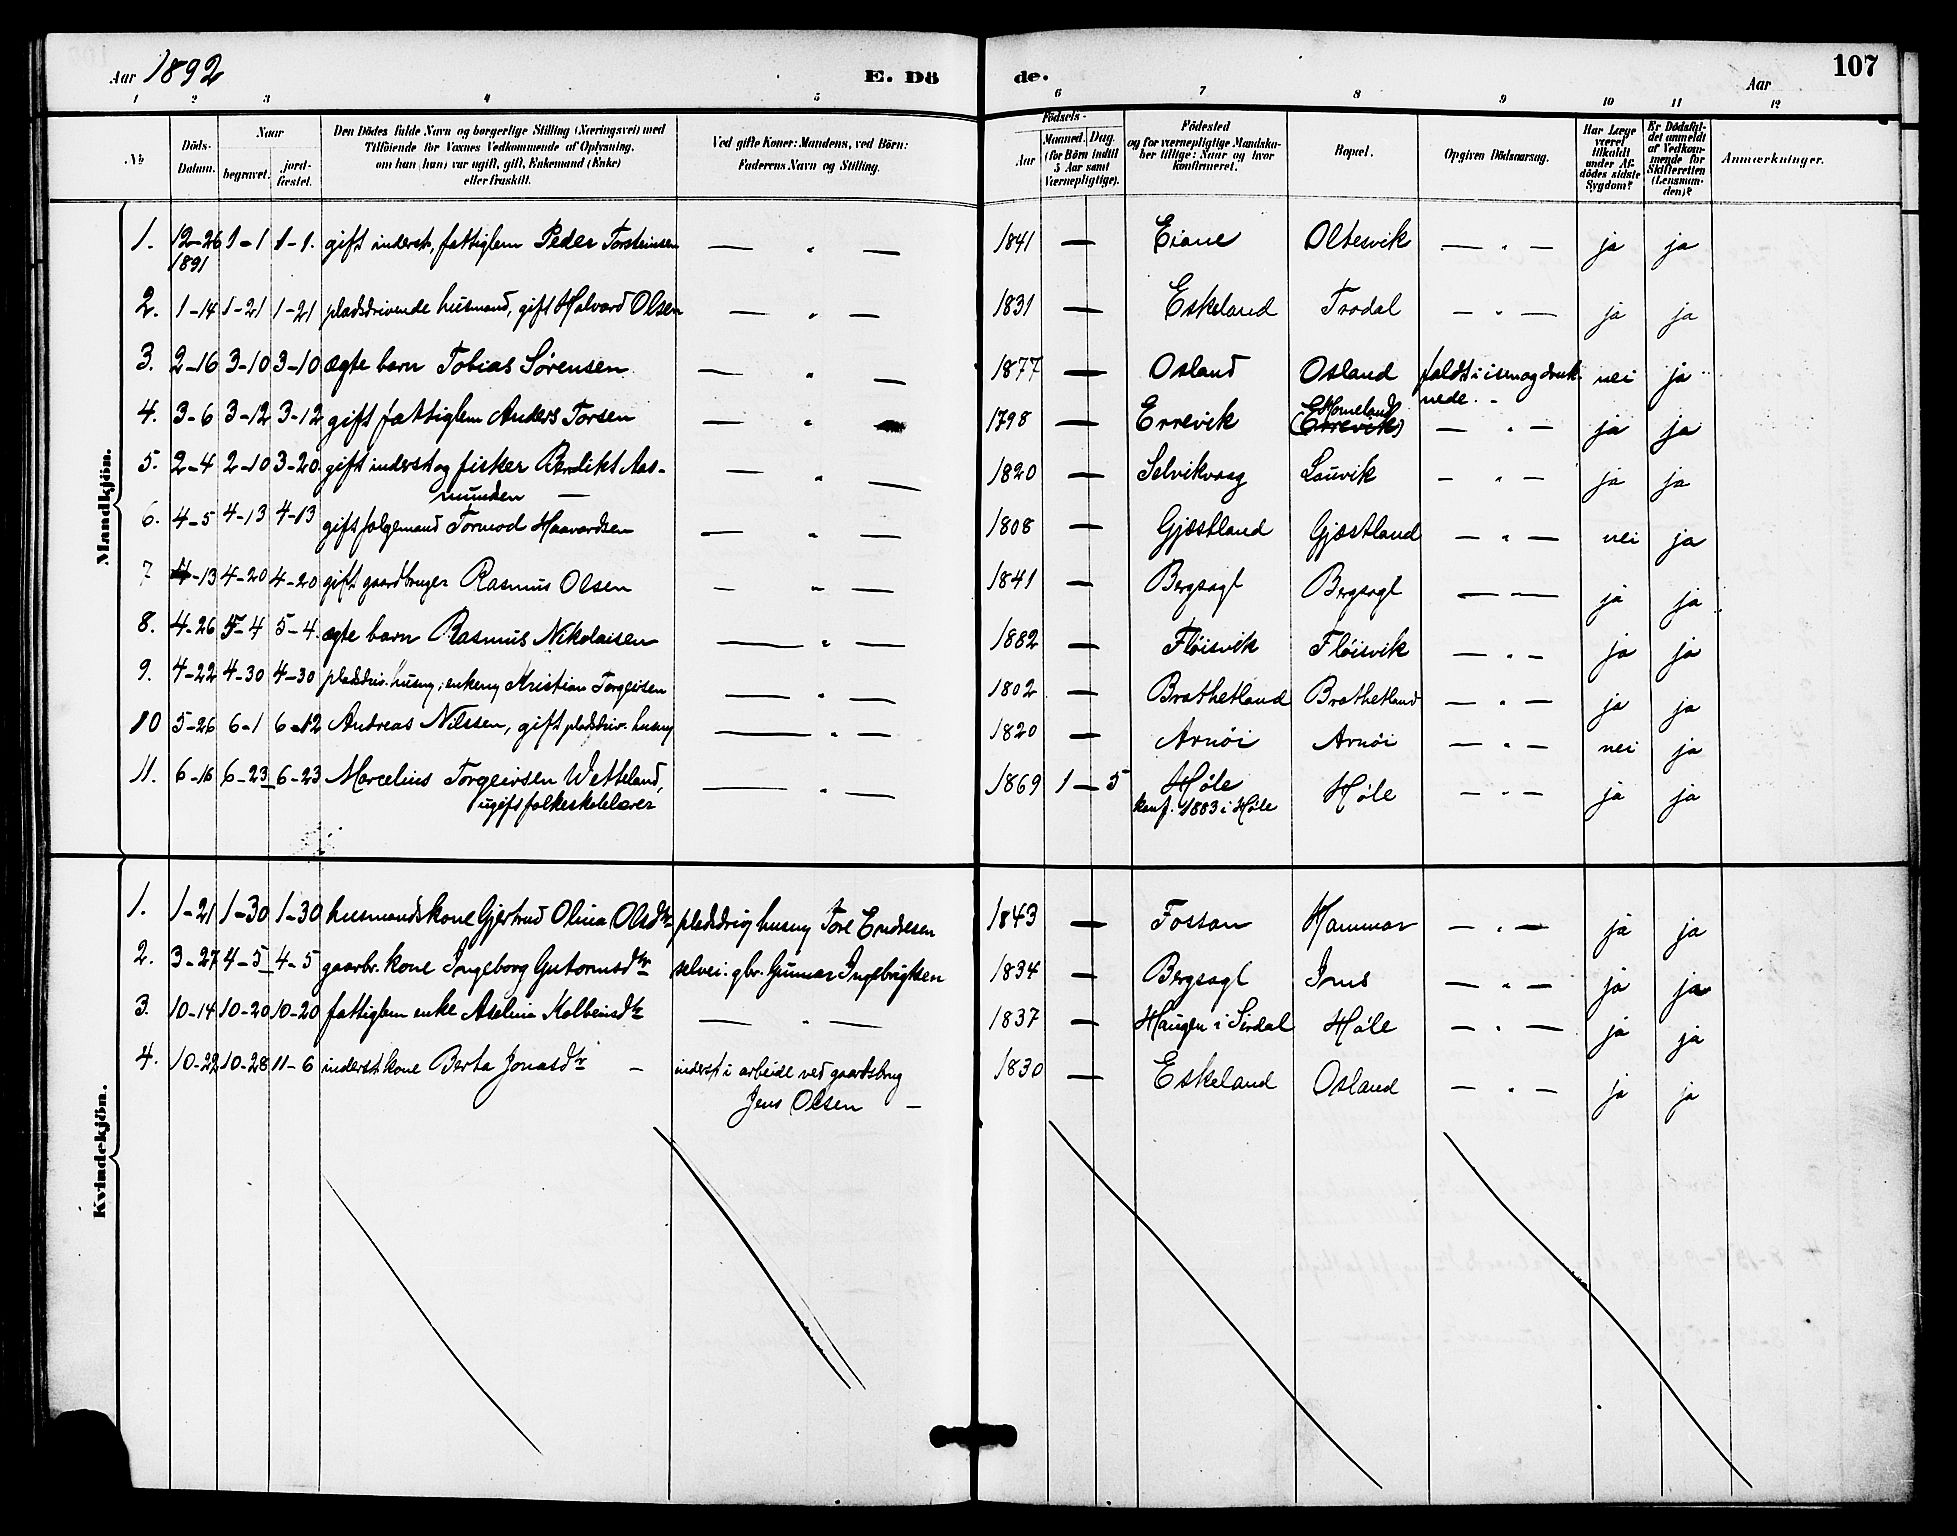 Aar 1892
E. Dö
de.
Aar
107
1 2 3 4 5 6 7 8 9 10 11 12
No
Döds-
Datum.
Naar
begravet.
jord-
fæstet.
Den Dödes fulde Navn og borgerlige Stilling (Næringsvei) med
Tilföiende for Voxnes Vedkommende af Oplysning,
om han (hun) var ugift, gift, Enkemand (Enke)
eller fraskilt.
Ved gifte Koner: Mandens, ved Börn:
Faderens Navn og Stilling.
Födsels-
Aar
Maaned. Dag.
(for Börn indtil
5 Aar samt
Værnepligtige).
Födested
og for værnepligtige Mandska-
ber tillige: Naar og hvor
konfirmeret.
Bopæl.
Opgiven Dödsaarsag.
Har Læge
været
tilkaldt
under Af-
dödes sidste
Sygdom?
Er Dödsfal-
det anmeldt
af Vedkom-
mende for
Skifteretten
(Lensman-
den)?
Anmærkninger.
Mandkjön.
1. 12-26 1-1 1-1. gift inderst, fattiglem Peder Torsteinsen — " — 1841 — Eiane Oltesvik — " — ja ja
1891
2. 1-14 1-21 1-21 pladsdrivende husmand, gift Halvard Olsen — " — 1831 — Eskeland Trodal — " — ja ja
3. 2-16 3-10 3-10 ægte barn Tobias Sørensen — " — 1877 — Osland Osland faldt i isen og druk- nei ja
nede. -
4. 3-6 3-12 3-12 gift fattiglem Anders Torsen — " — 1798 — Errevik Horneland (Errevik) — " — ja ja
5. 2-4 2-10 3-20 gift inderst og fisker Bendikt Aas- — " — 1820 — Selvikvaag Lauvik — " — ja ja
munden —
6. 4-5 4-13 4-13 gift følgemand Tormod Haavardsen — " — 1808 — Gjæstland Gjæstland — " — nei ja
7 4-13 4-20 4-20 gift gaardbruger Rasmus Olsen — " — 1841 — Bergsagl Bergsagl — " — ja ja
8. 4-26 5-4 5-4. ægte barn Rasmus Nikolaisen — " — 1882 — Fløisvik Fløisvik — " — ja ja
9. 4-22 4-30 4-30 pladsdriv. husm, enkem Kristian Torgeirsen — " — 1802 — Brathetland Brathetland — " — ja ja
10 5-26 6-1 6-12 Andreas Nilssen, gift pladsdriv. husm — " — 1820 — Arnøi Arnøi — " — nei ja
11. 6-16 6-23 6-23 Marcelius Torgeirsen Wetteland, — " — 1869 1 — 5 Høle Høle — " — ja ja
ugift folkeskolelærer konf. 1883 i Høle
Kvindekjön.
1. 1-21 1-30 1-30 husmandskone Gjertrud Olina Olsdtr pladsdriv husm Tore Endresen 1843 — Fossan Hammar — " — ja ja
2. 3-27 4-5 4-5 gaarbr. kone Ingeborg Gutormsdtr selvei. gbr. Gunnar Ingebrigtsen 1834 — Bergsagl Ims — " — ja ja
3. 10-14 10-20 10-20 fattiglem enke Aselina Kolbeinsdtr — " — 1837 — Haugen i Sirdal Høle — " — ja ja
4. 10-22 10-28 11-6 inderstkone Berta Jonasdtr — inderst i arbeide ved gaardsbrug 1830 — Eskeland Osland — " — ja ja
Jens Olsen —